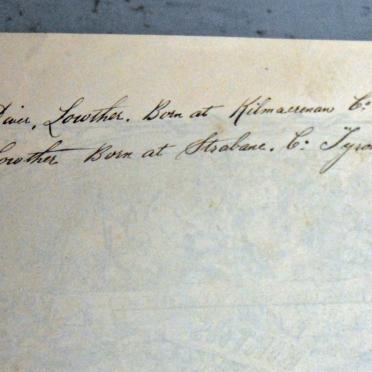 Diver, Lowther. Born at Kilmacrenan Co:
Lowther Born at Strabane. Co: Tyro